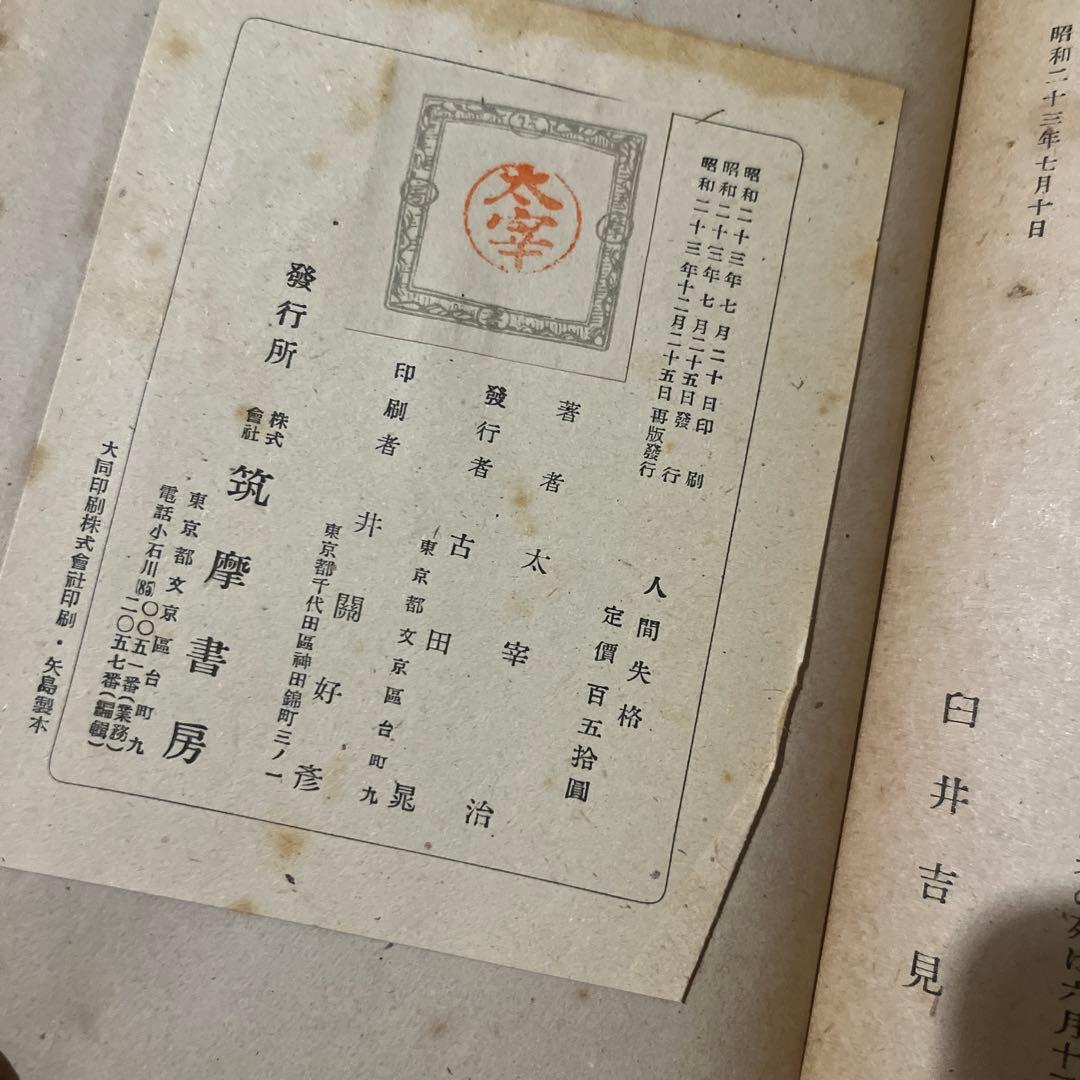 昭和二十三年七月十日
臼井吉見
太宰
昭和二十三年七月二十日印刷
昭和二十三年七月二十五日發行
昭和二十三年十二月二十五日再版發行
人間失格
定價百五拾圓
著者 太宰治
發行者 古田晁
東京都文京區台町九
印刷者 井關好彥
東京都千代田區神田錦町三ノ一
發行所 株式會社 筑摩書房
東京都文京區台町九
電話小石川(85)〇〇五一番(業務)
二〇五七番(編輯)
大同印刷株式會社印刷・矢島製本